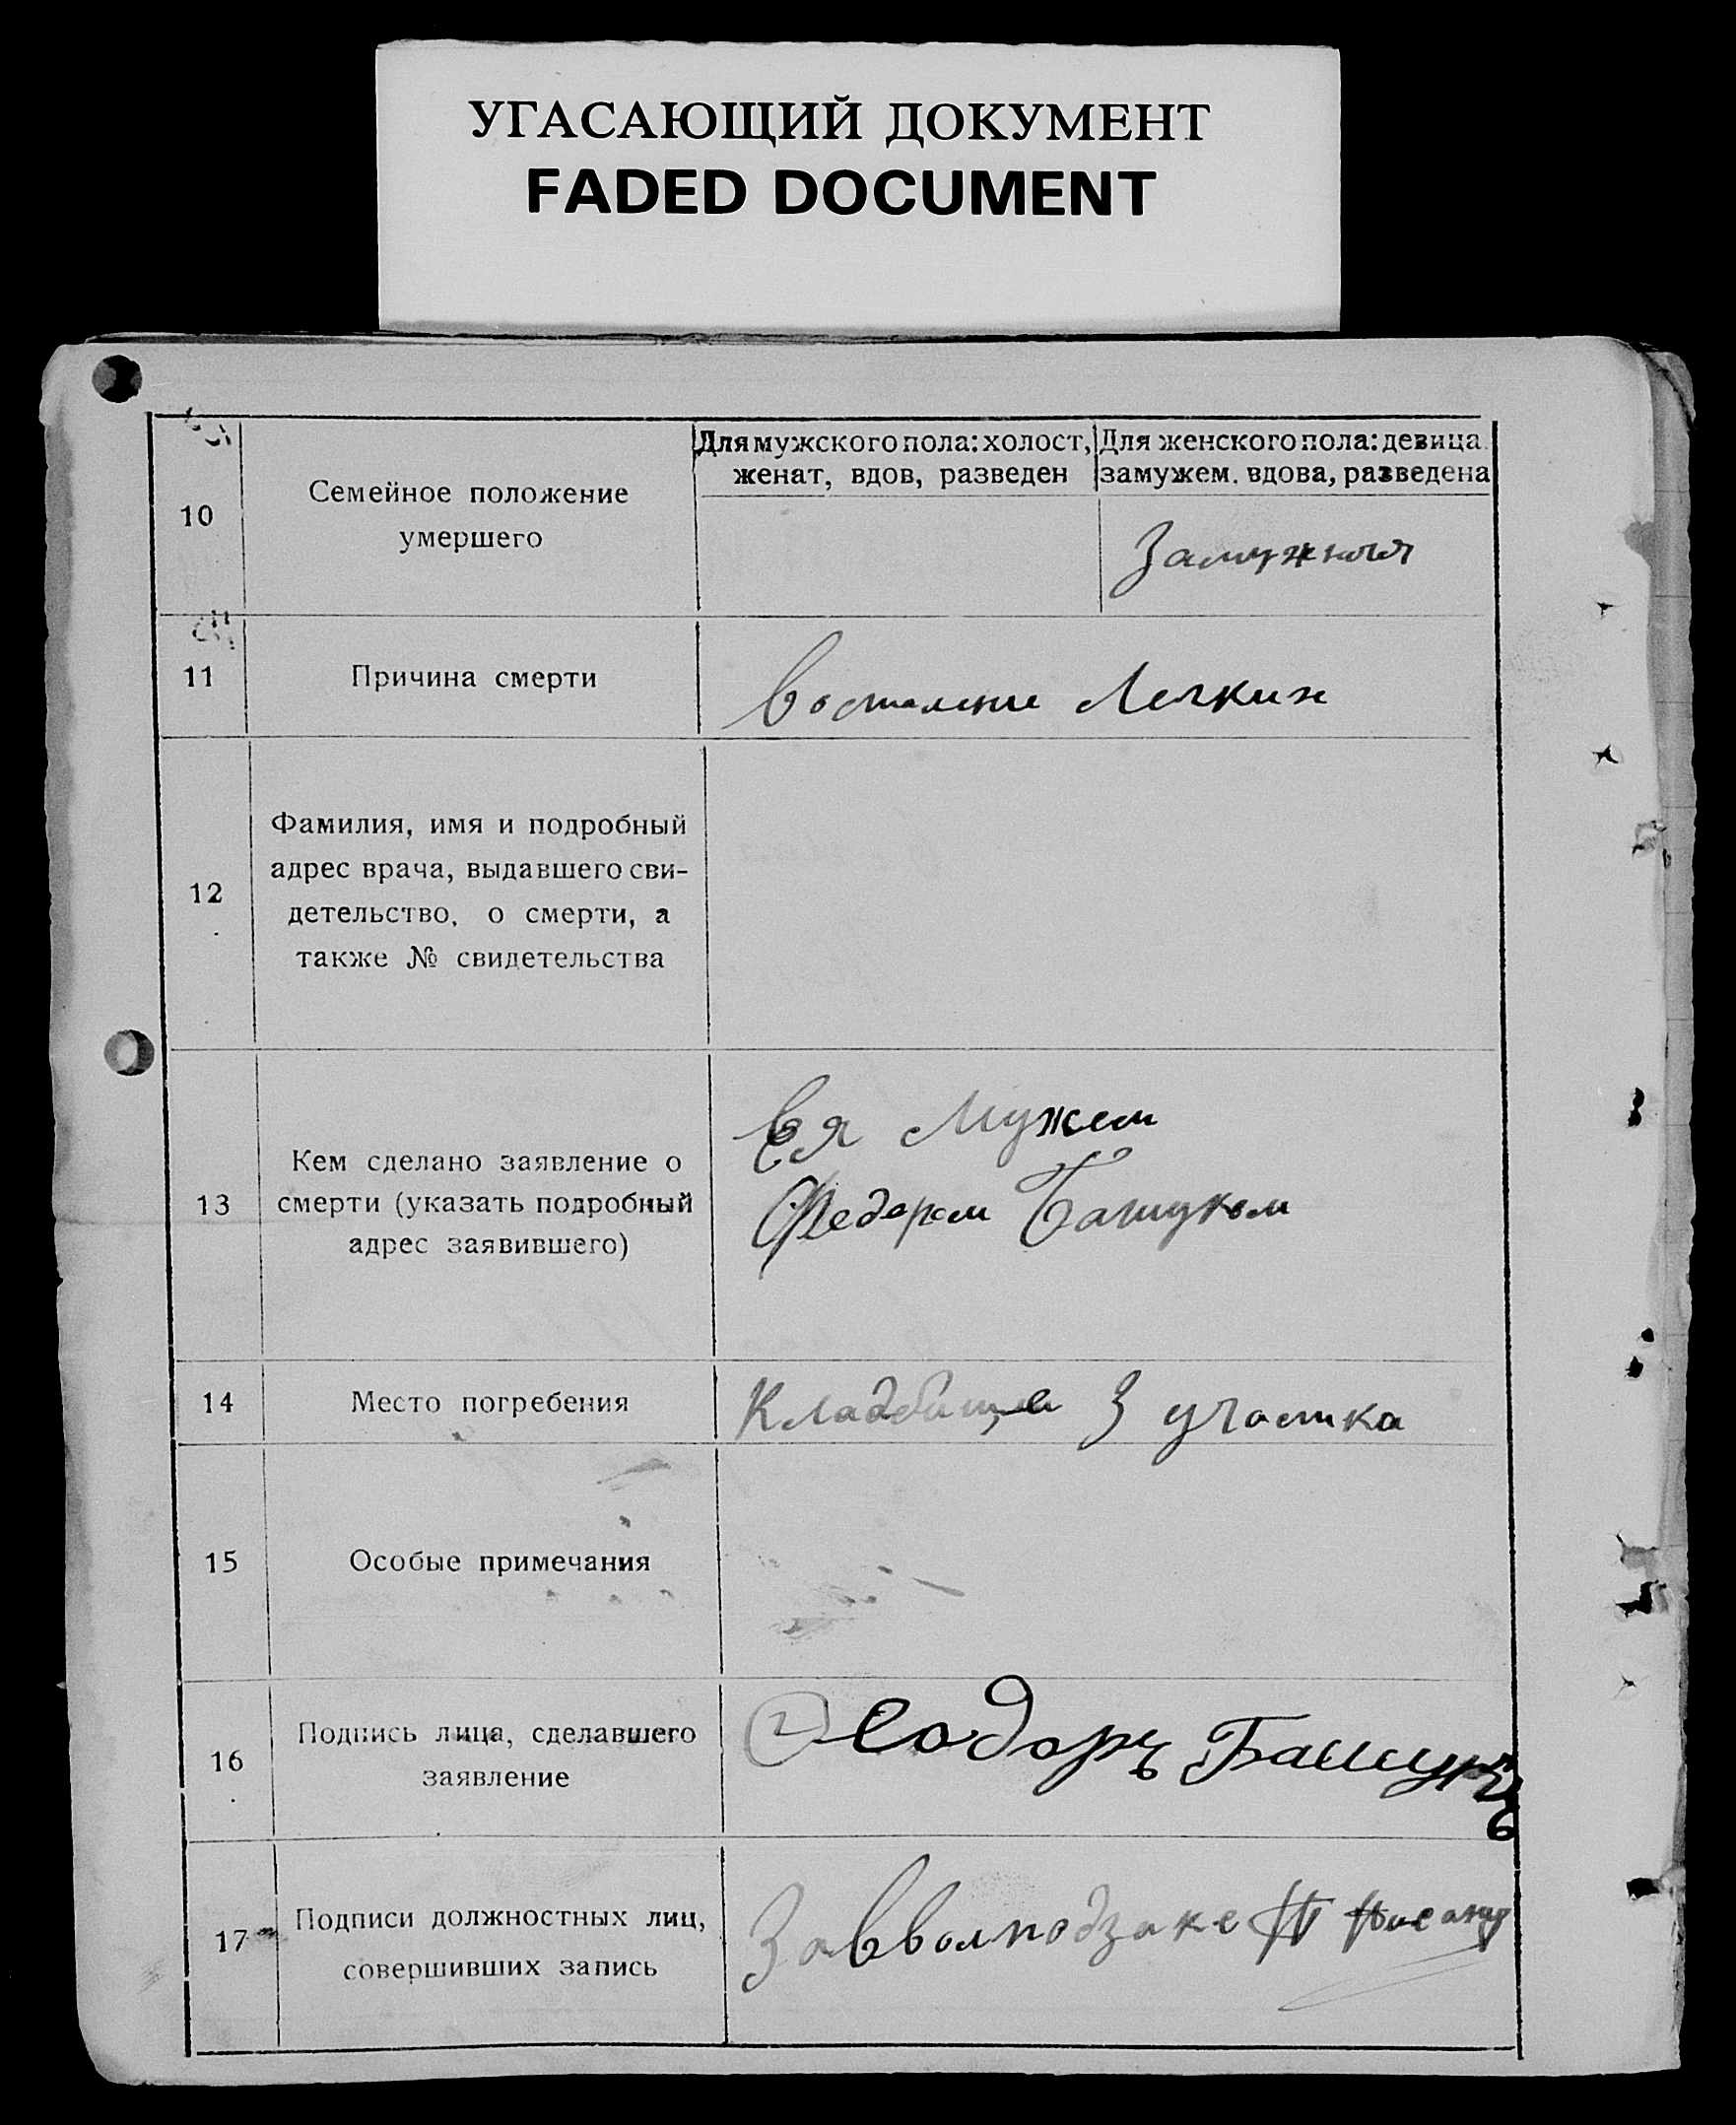 УГАСАЮЩИЙ ДОКУМЕНТ
FADED DOCUMENT
10
Семейное положение
умершего
Для мужского пола: холост,
женат, вдов, разведен
Для женского пола: девица
замужем. вдова, разведена
Замужняя
11
Причина смерти
Воспаление Легких
12
Фамилия, имя и подробный
адрес врача, выдавшего сви-
детельство, о смерти, а
также № свидетельства
13
Кем сделано заявление о
смерти (указать подробный
адрес заявившего)
Ея Мужем
Федором Башуком
14
Место погребения
Кладбище 3 участка
15
Особые примечания
16
Подпись лица, сделавшего
заявление
Феодоръ Башукъ
17
Подписи должностных лиц,
совершивших запись
Завволподзаке